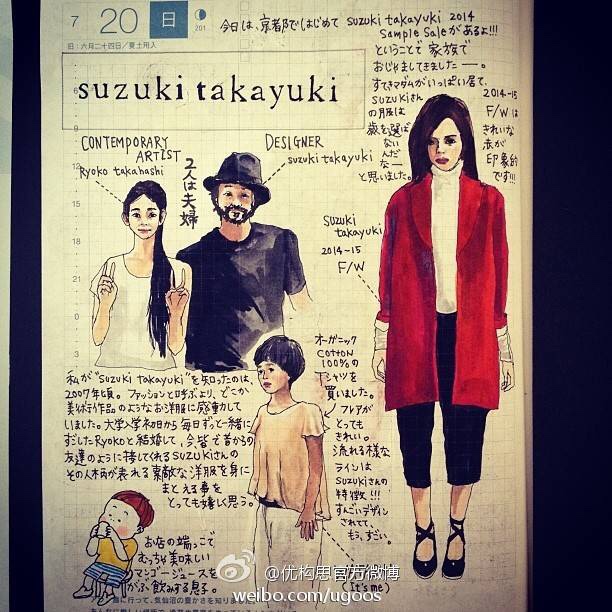 7 20 日 201
旧:六月二十四日/夏土用入
今日は、京都ではじめて suzuki takayuki 2014
Sample Saleがあるよ!!!
ということで家族で
おじゃましてきましたー。
すてきマダムがいっぱい居て、
suzukiさん
の月服は
歳を選ば
ない
んだ
なー
と思いました。
2014-15
F/Wは
きれいな
赤が
印象的
です!!!
suzuki takayuki
CONTEMPORARY
ARTIST
Ryoko takahashi
2人は夫婦
DESIGNER
suzuki takayuki
suzuki
takayuki
2014-15
F/W
私が"suzuki takayuki"を知ったのは、
2007年頃。ファッションと呼ぶより、どこか
美術作品のようなお洋服に感動して
いました。大学入学初日から毎日ずっと一緒に
すごしたRyokoと結婚して、今皆で昔からの
友達のように接してくれるsuzukiさんの
その人柄が表れる素敵な洋服を身に
まとえる事を
とっても嬉しく思う。
オーガニック
cotton
100%の
Tシャツを
買いました。
フレアが
とっても
きれい。
流れる様な
ラインは
suzukiさんの
特徴!!!
すんごいデザイン
されてて、
もう、すごい。
(It's me)
お店の端っこで
むっちゃ美味しい
マンゴージュースを
がぶ飲みする息子。
9
12
15
18
21
0
3
@优构思官方微博
weibo.com/ugoos